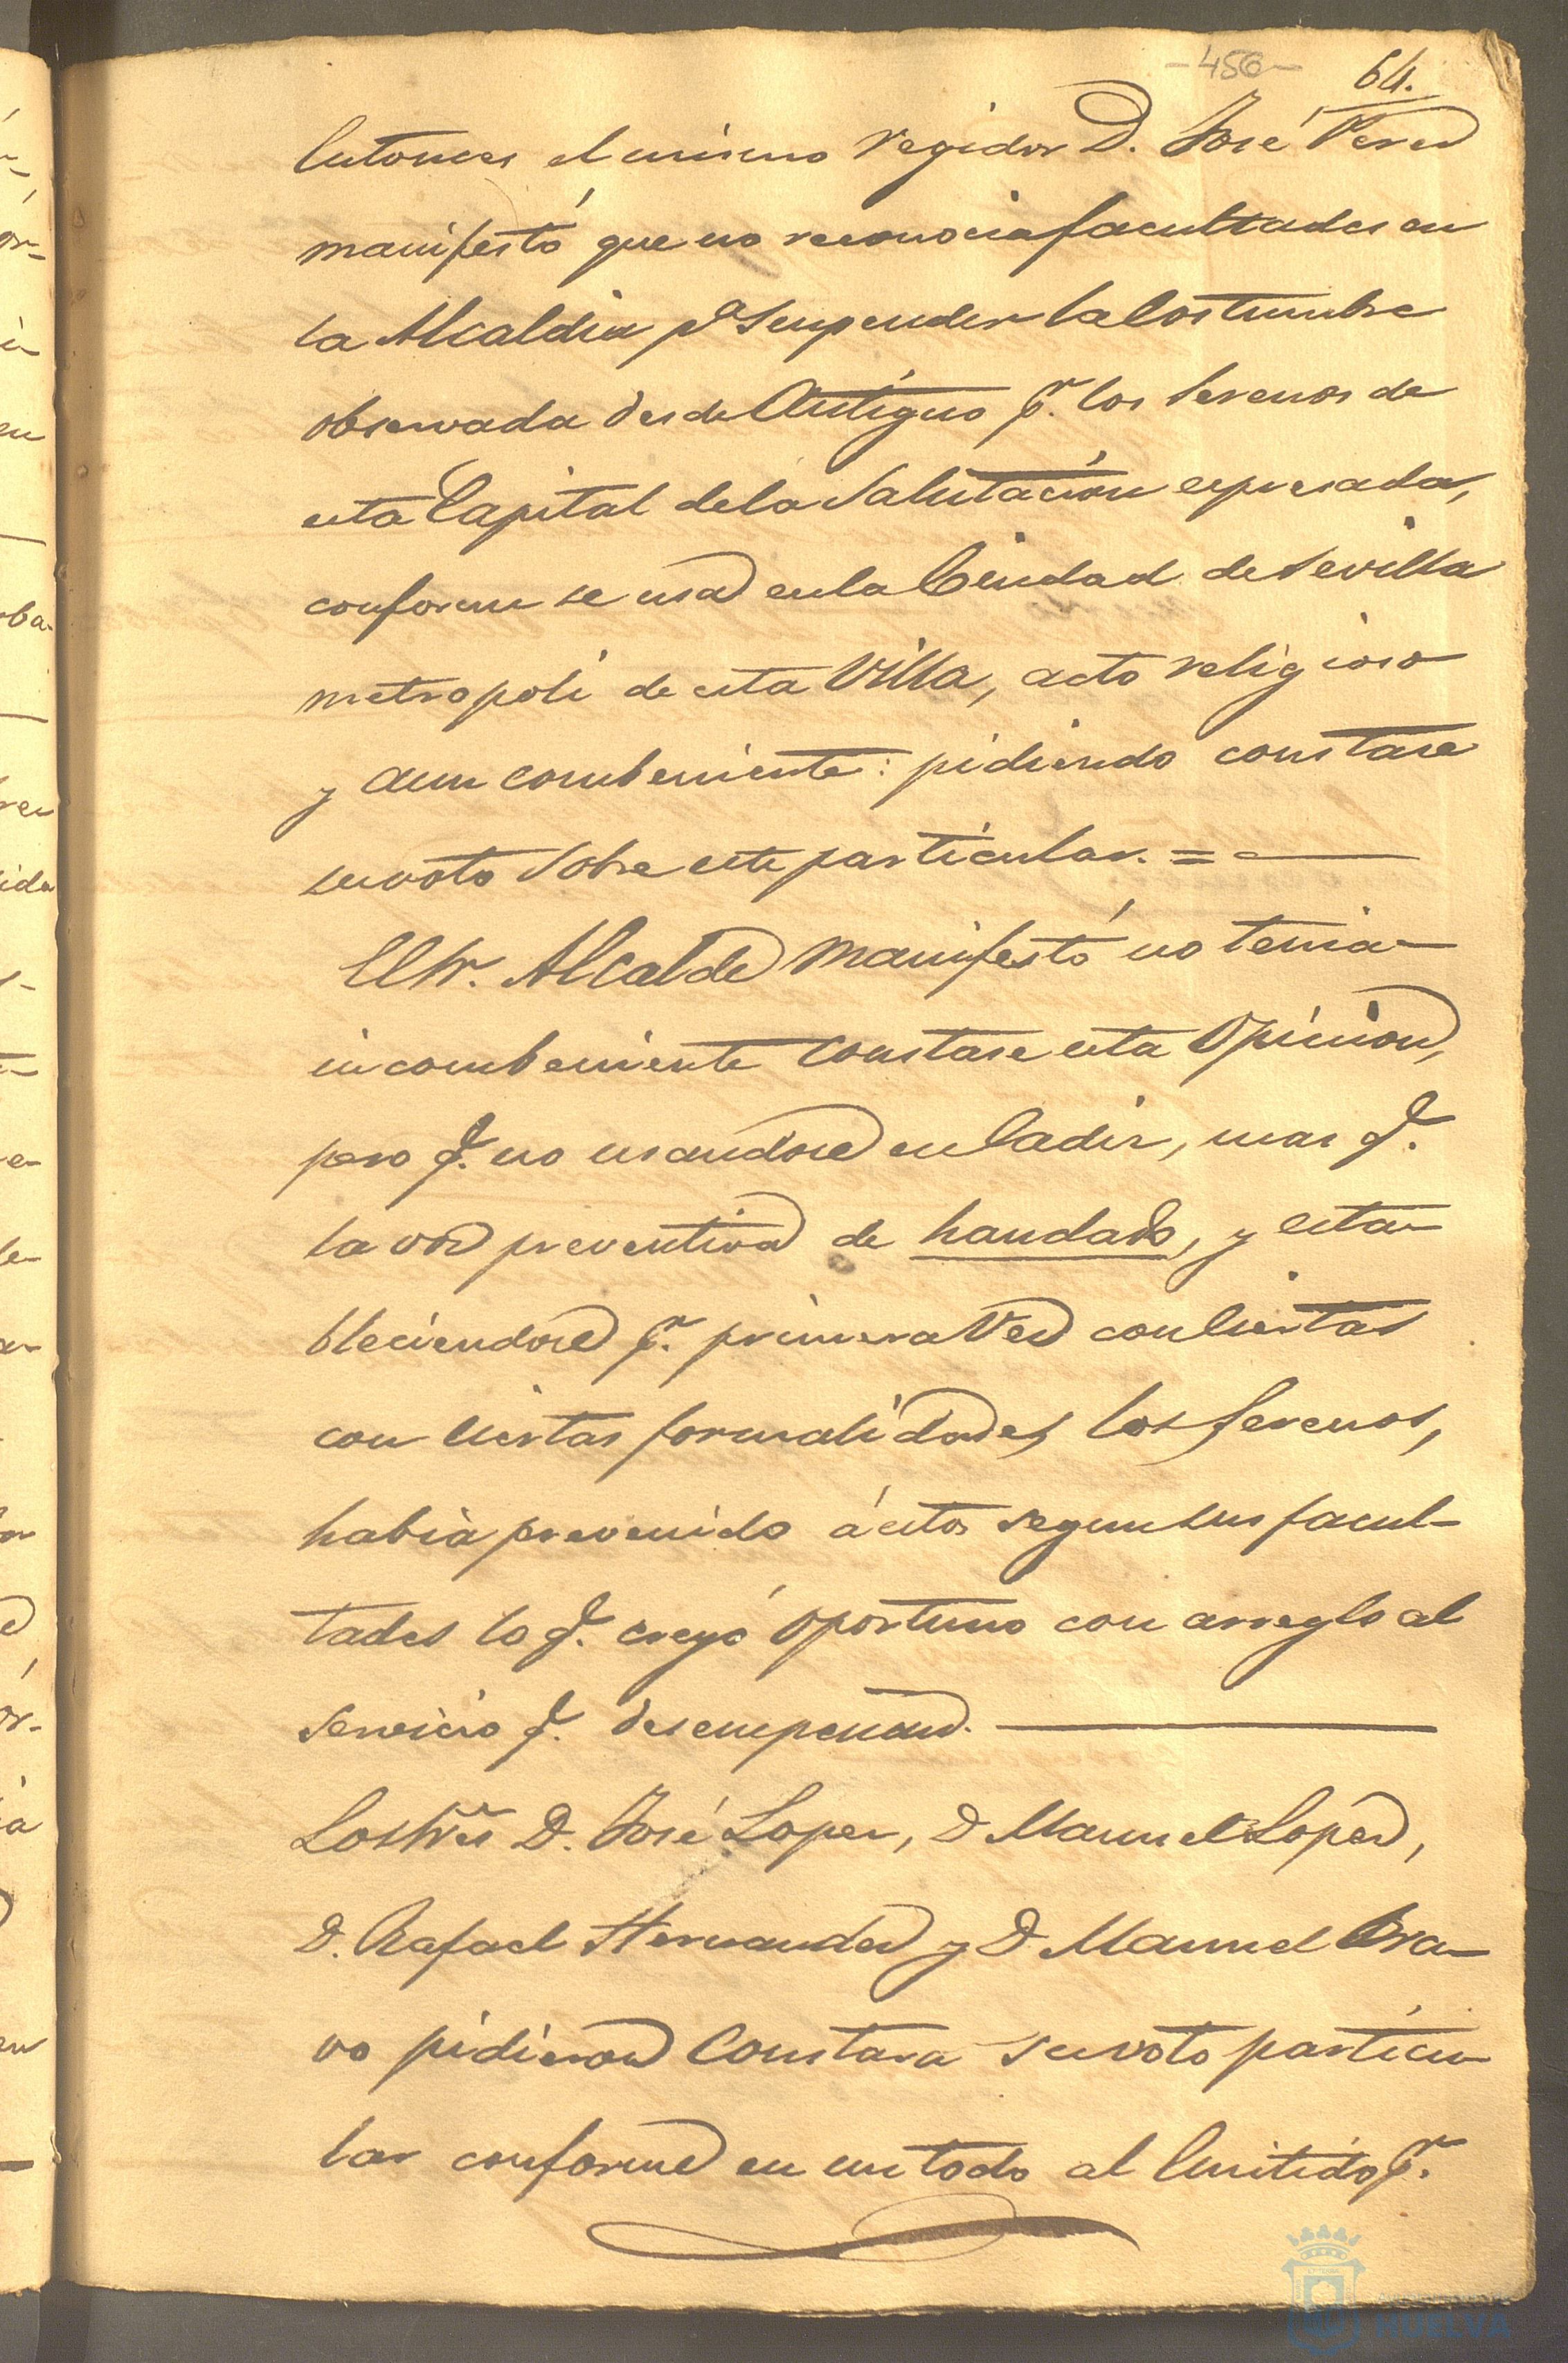 -456-
64.
Entonces el mismo regidor D. José Perez
manifestó que no reconocia facultades en
la Alcaldia pª suspender la Costumbre
observada desde Antíguo pr. los Serenos de
esta Capital de la Salutación espresada,
conforme se usa en la Ciudad de Sevilla
metropoli de esta Villa, acto religioso
y aun combeniente: pidiendo constase
su voto sobre este particular. =
El Sr. Alcalde manifestó no tenia
incombeniente constase esta Opinion,
pero q. no usandose en Cadiz, mas q.
la voz preventiva de handado, y esta-
bleciendose pr. primera Vez con ciertas
con ciertas formalidades los Serenos,
habia prevenido á estos segun sus facul-
tades lo q. creyó oportuno con arreglo al
servicio q. desempeñan.
Los Sres D. José Lopez, D Manuel Lopez,
D. Rafael Hernandez y D Manuel Bra-
vo pidieron Constara su voto particu-
lar conforme en un todo al Emitido pr.
HUELVA